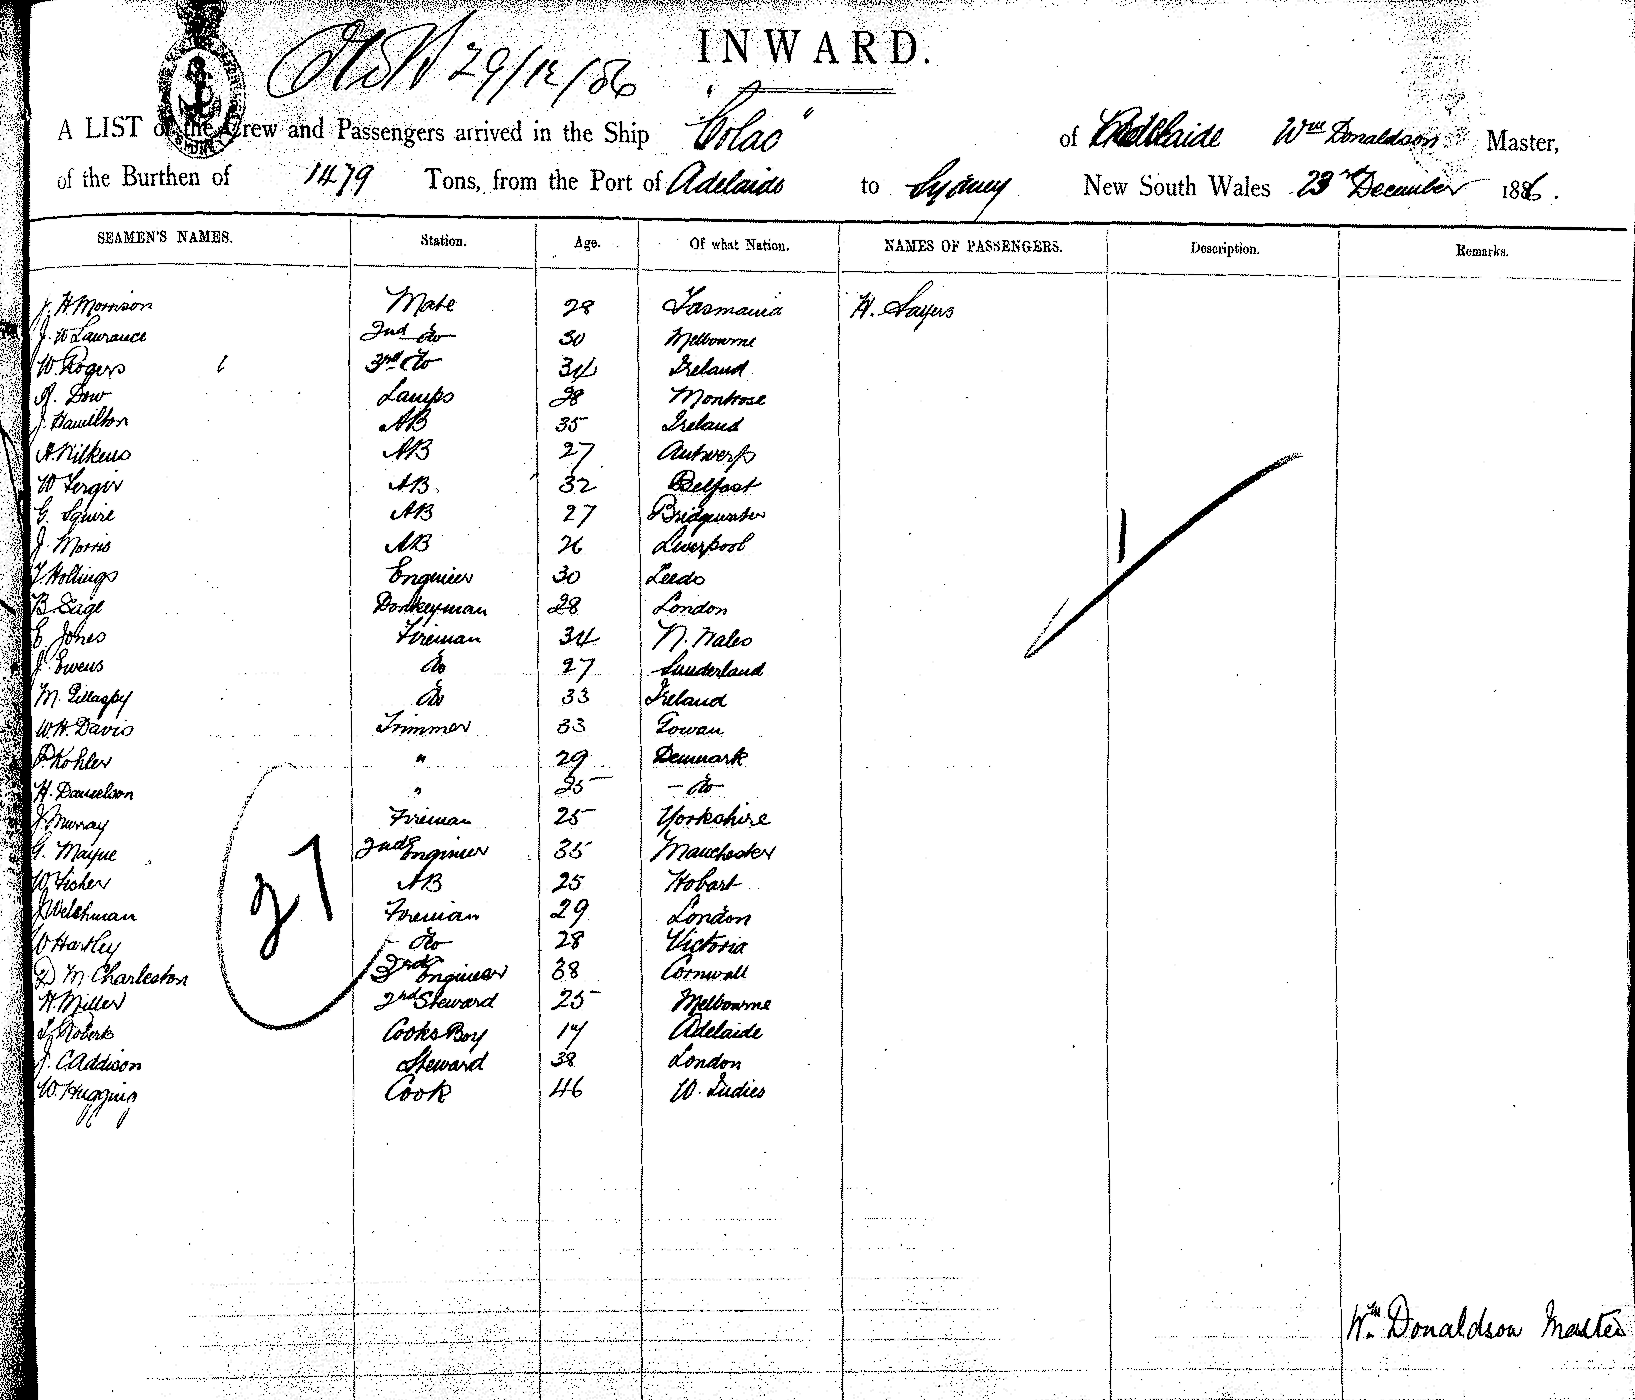 INWARD.
29/12/86
A LIST of the Crew and Passengers arrived in the Ship "Colac" of Adelaide Wm Donaldson Master,
of the Burthen of 1479 Tons, from the Port of Adelaide to Sydney New South Wales 23rd December 1886.
SEAMEN'S NAMES. Station. Age. Of what Nation. NAMES OF PASSENGERS. Description. Remarks.
J. H Morrison Mate 28 Tasmania H. Sayers
J. W Lawrance 2nd do 30 Melbourne
W. Rogers 3rd do 34 Ireland
R. Dow Lamps 28 Montrose
J. Hamilton AB 35 Ireland
A. Wilkens AB 27 Antwerp
W AB 32 Belfast
G. Squire AB 27 Bridgewater
J. Morris AB 26 Liverpool
T. Hollings Engenier 30 Leeds
B Sage Donkeyman 28 London
E. Jones Fireman 34 N. Wales
J. Ewens do 27 Sunderland
M. Gillaspy do 33 Ireland
W. H. Davis Trimmer 33 Gowan
P. Kohler " 29 Denmark
H. Danielson " 25 - do -
J. Murray Fireman 25 Yorkshire
G. Mayne 2nd Enginier 35 Manchester
W. Fisher AB 25 Hobart
J. Welchman Fireman 29 London
W Hartley do 28 Victoria
D M Charleston 3rd Engineer 38 Cornwall
H. Miller 2nd Steward 25 Melbourne
T. Roberts Cooks Boy 17 Adelaide
J. C Addison Steward 38 London
W. Huggins Cook 46 W. Indies
1
27
Wm Donaldson Master